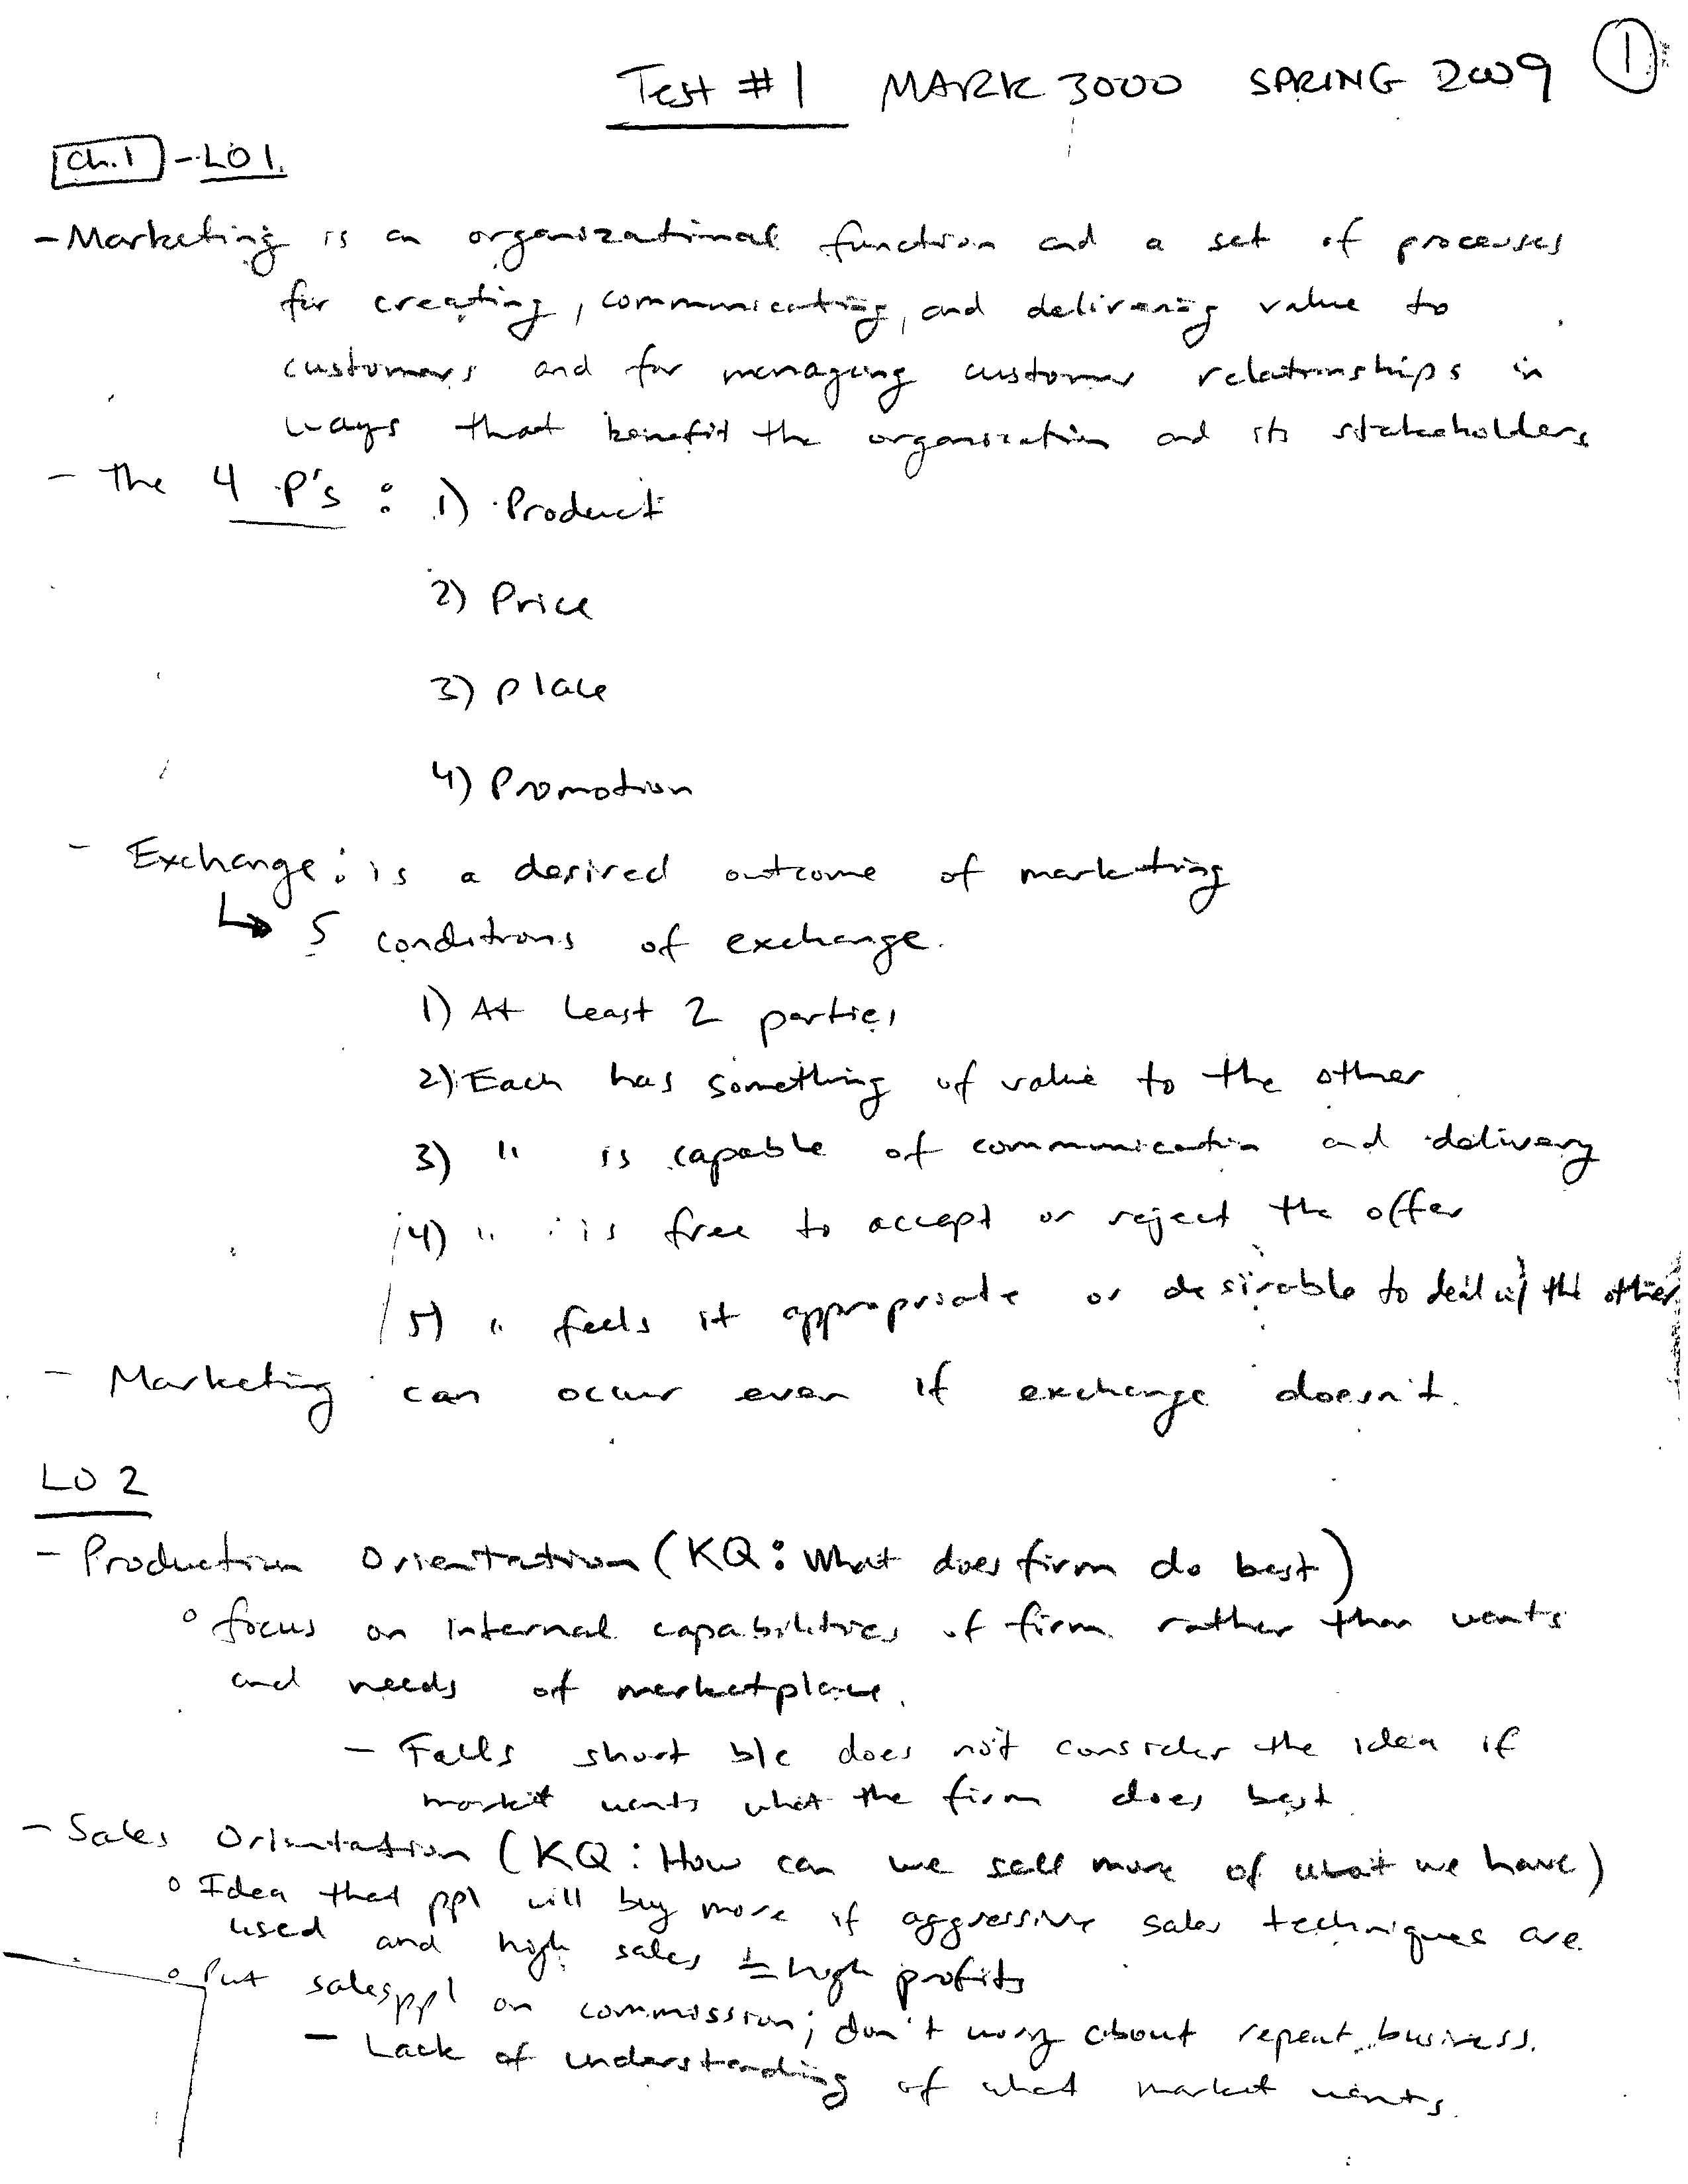 Test #1 MARK 3000 SPRING 2009 1
Ch. 1 - LO1.
- Marketing is an organizational function and a set of processes
for creating, communicating, and delivering value to
customers and for managing customer relationships in
ways that benefit the organization and its stakeholders
- The 4 P's : 1) Product
2) Price
3) Place
4) Promotion
- Exchange: is a desired outcome of marketing
↳ 5 conditions of exchange.
1) At least 2 parties
2) Each has something of value to the other
3) " is capable of communication and delivery
4) " is free to accept or reject the offer
5) " feels it appropriate or desirable to deal w/ the other
- Marketing can occur even if exchange doesn't.
LO 2
- Production Orientation (KQ: What does firm do best)
° focus on internal capabilities of firm rather than wants
and needs of marketplace.
- Falls short b/c does not consider the idea if
market wants what the firm does best.
- Sales Orientation (KQ: How can we sell more of what we have)
° Idea that ppl will buy more if aggressive sales techniques are
used and high sales = high profits
° Put salesppl on commission; don't worry about repeat business.
- Lack of understanding of what market wants.